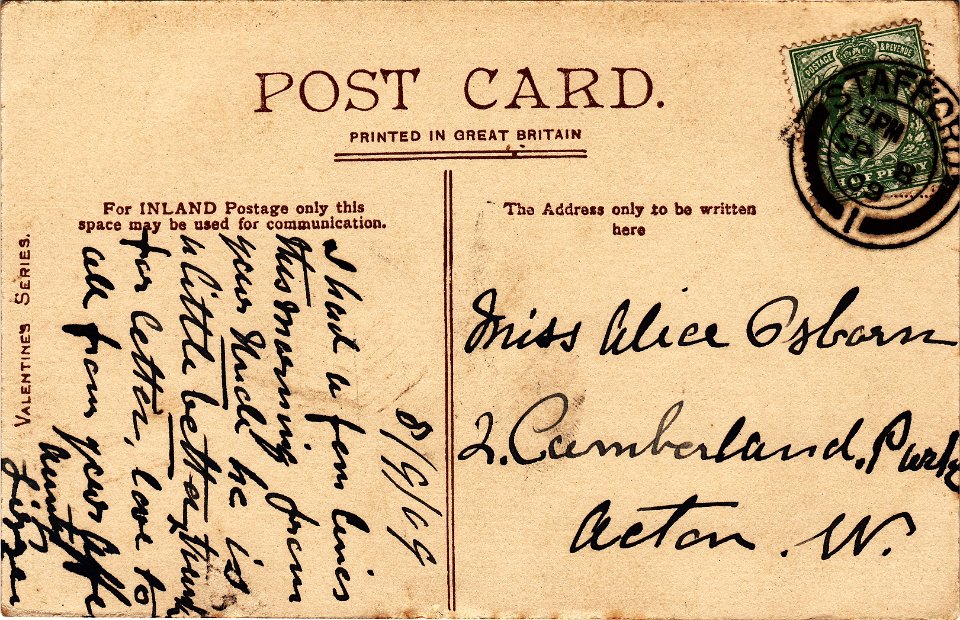 POST CARD.
PRINTED IN GREAT BRITAIN
POSTAGE & REVENUE
STAFFORD
9 PM
SP 8
09
For INLAND Postage only this
space may be used for communication.
The Address only to be written
here
VALENTINES SERIES.
8/9/09
I had a few lines
this morning from
your Uncle he is
a little better, thank
for letter, love to
all from your affe
Aunt
Lizzie
Miss Alice Osborn
2. Cumberland. Park
Acton. W.